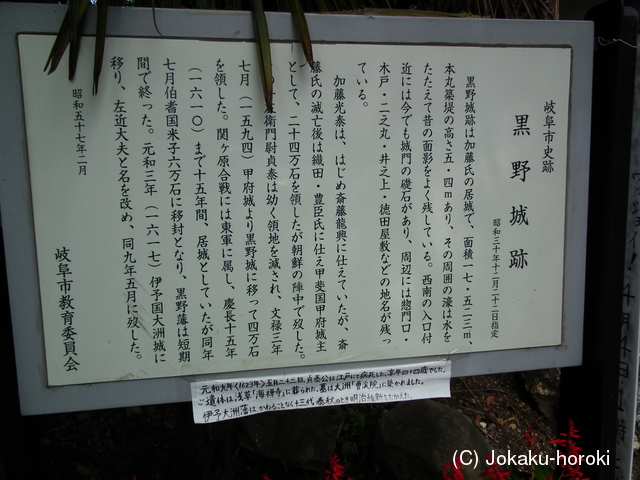 岐阜市史跡
黒野城跡
昭和三十年十二月二十二日指定
黒野城跡は加藤氏の居城で、面積一七・五二三㎡、
本丸築堤の高さ五・四mあり、その周囲の濠は水を
たたえて昔の面影をよく残している。西南の入口付
近には今でも城門の礎石があり、周辺には惣門口・
木戸・二之丸・井之上・徳田屋敷などの地名が残っ
ている。
加藤光泰は、はじめ斎藤龍興に仕えていたが、斎
藤氏の滅亡後は織田・豊臣氏に仕え甲斐国甲府城主
として、二十四万石を領したが朝鮮の陣中で歿した。
衛門尉貞泰は幼く領地を減され、文禄三年
七月(一五九四)甲府城より黒野城に移って四万石
を領した。関ヶ原合戦には東軍に属し、慶長十五年
(一六一〇)まで十五年間、居城としていたが同年
七月伯耆国米子六万石に移封となり、黒野藩は短期
間で終った。元和三年(一六一七)伊予国大洲城に
移り、左近大夫と名を改め、同九年五月に歿した。
昭和五十七年二月
岐阜市教育委員会
元和九年(1623年)五月二十二日、貞泰公は江戸にて病死した。享年四十四歳でした。
ご遺体は、浅草「海禅寺」に葬られた。墓は大洲「曹渓院」に築かれました。
伊予大洲藩は、かわることなく十三代泰秋のとき明治維新をむかえた。
(C) Jokaku-horoki